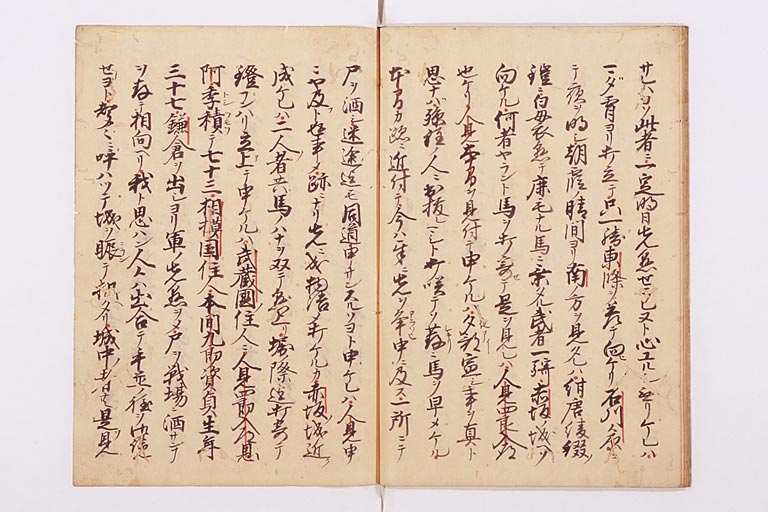 サレハコソ此者ニ一定明日先懸セラレヌト心ユルシ無リケレハ
マダ宵ヨリ打立テ只一騎東條ヲ差テ向ケリ石川々原ニ
テ夜ヲ明シ朝霞ノ晴間ヨリ南方ヲ見ケレハ紺唐綾綴ノ
鎧ニ白母衣懸テ鹿毛ナル馬ニ乗タル武者一騎赤坂ノ城ヘソ
向ケル何者ヤラント馬ヲ打寄テ是ヲ見レハ人見四郎入道
也ケリ人見本間ヲ見付テ申ケルハ夕部宣シ事ヲ真ト
思ナハ孫程ノ人ニ出抜レマシト打咲テソ頻ニ馬ヲ早メケル
本間カ跡ニ近付テ今ハ互ニ先ヲ争申ニ及ス一所ニテ
尸ヲ洒シ迷途迄モ同道申サンスルソヨト申ケレハ人見申
ニヤ及ト返事シテ跡ニナリ先ニ成物語シテ打ケルカ赤坂城近ク
成ケレハ二人者共馬ノハナヲ双テ懸上リ堀際迄打寄テ
鐙フンハリ立上テ申ケルハ武蔵國住人ニ人見四郎入道恩
阿季積テ七十三相模国住人本間九郎資貞生年
三十七鎌倉ヲ出シヨリ軍ノ先懸シテ尸ヲ戦場ニ洒サン事
ヲ存テ相向ヘリ我ト思ハン人々ハ出合テ手並ノ程ヲ御覧
セヨト声々ニ呼ハツテ城ヲ睨テ引ヘタリ城中者共是見テ